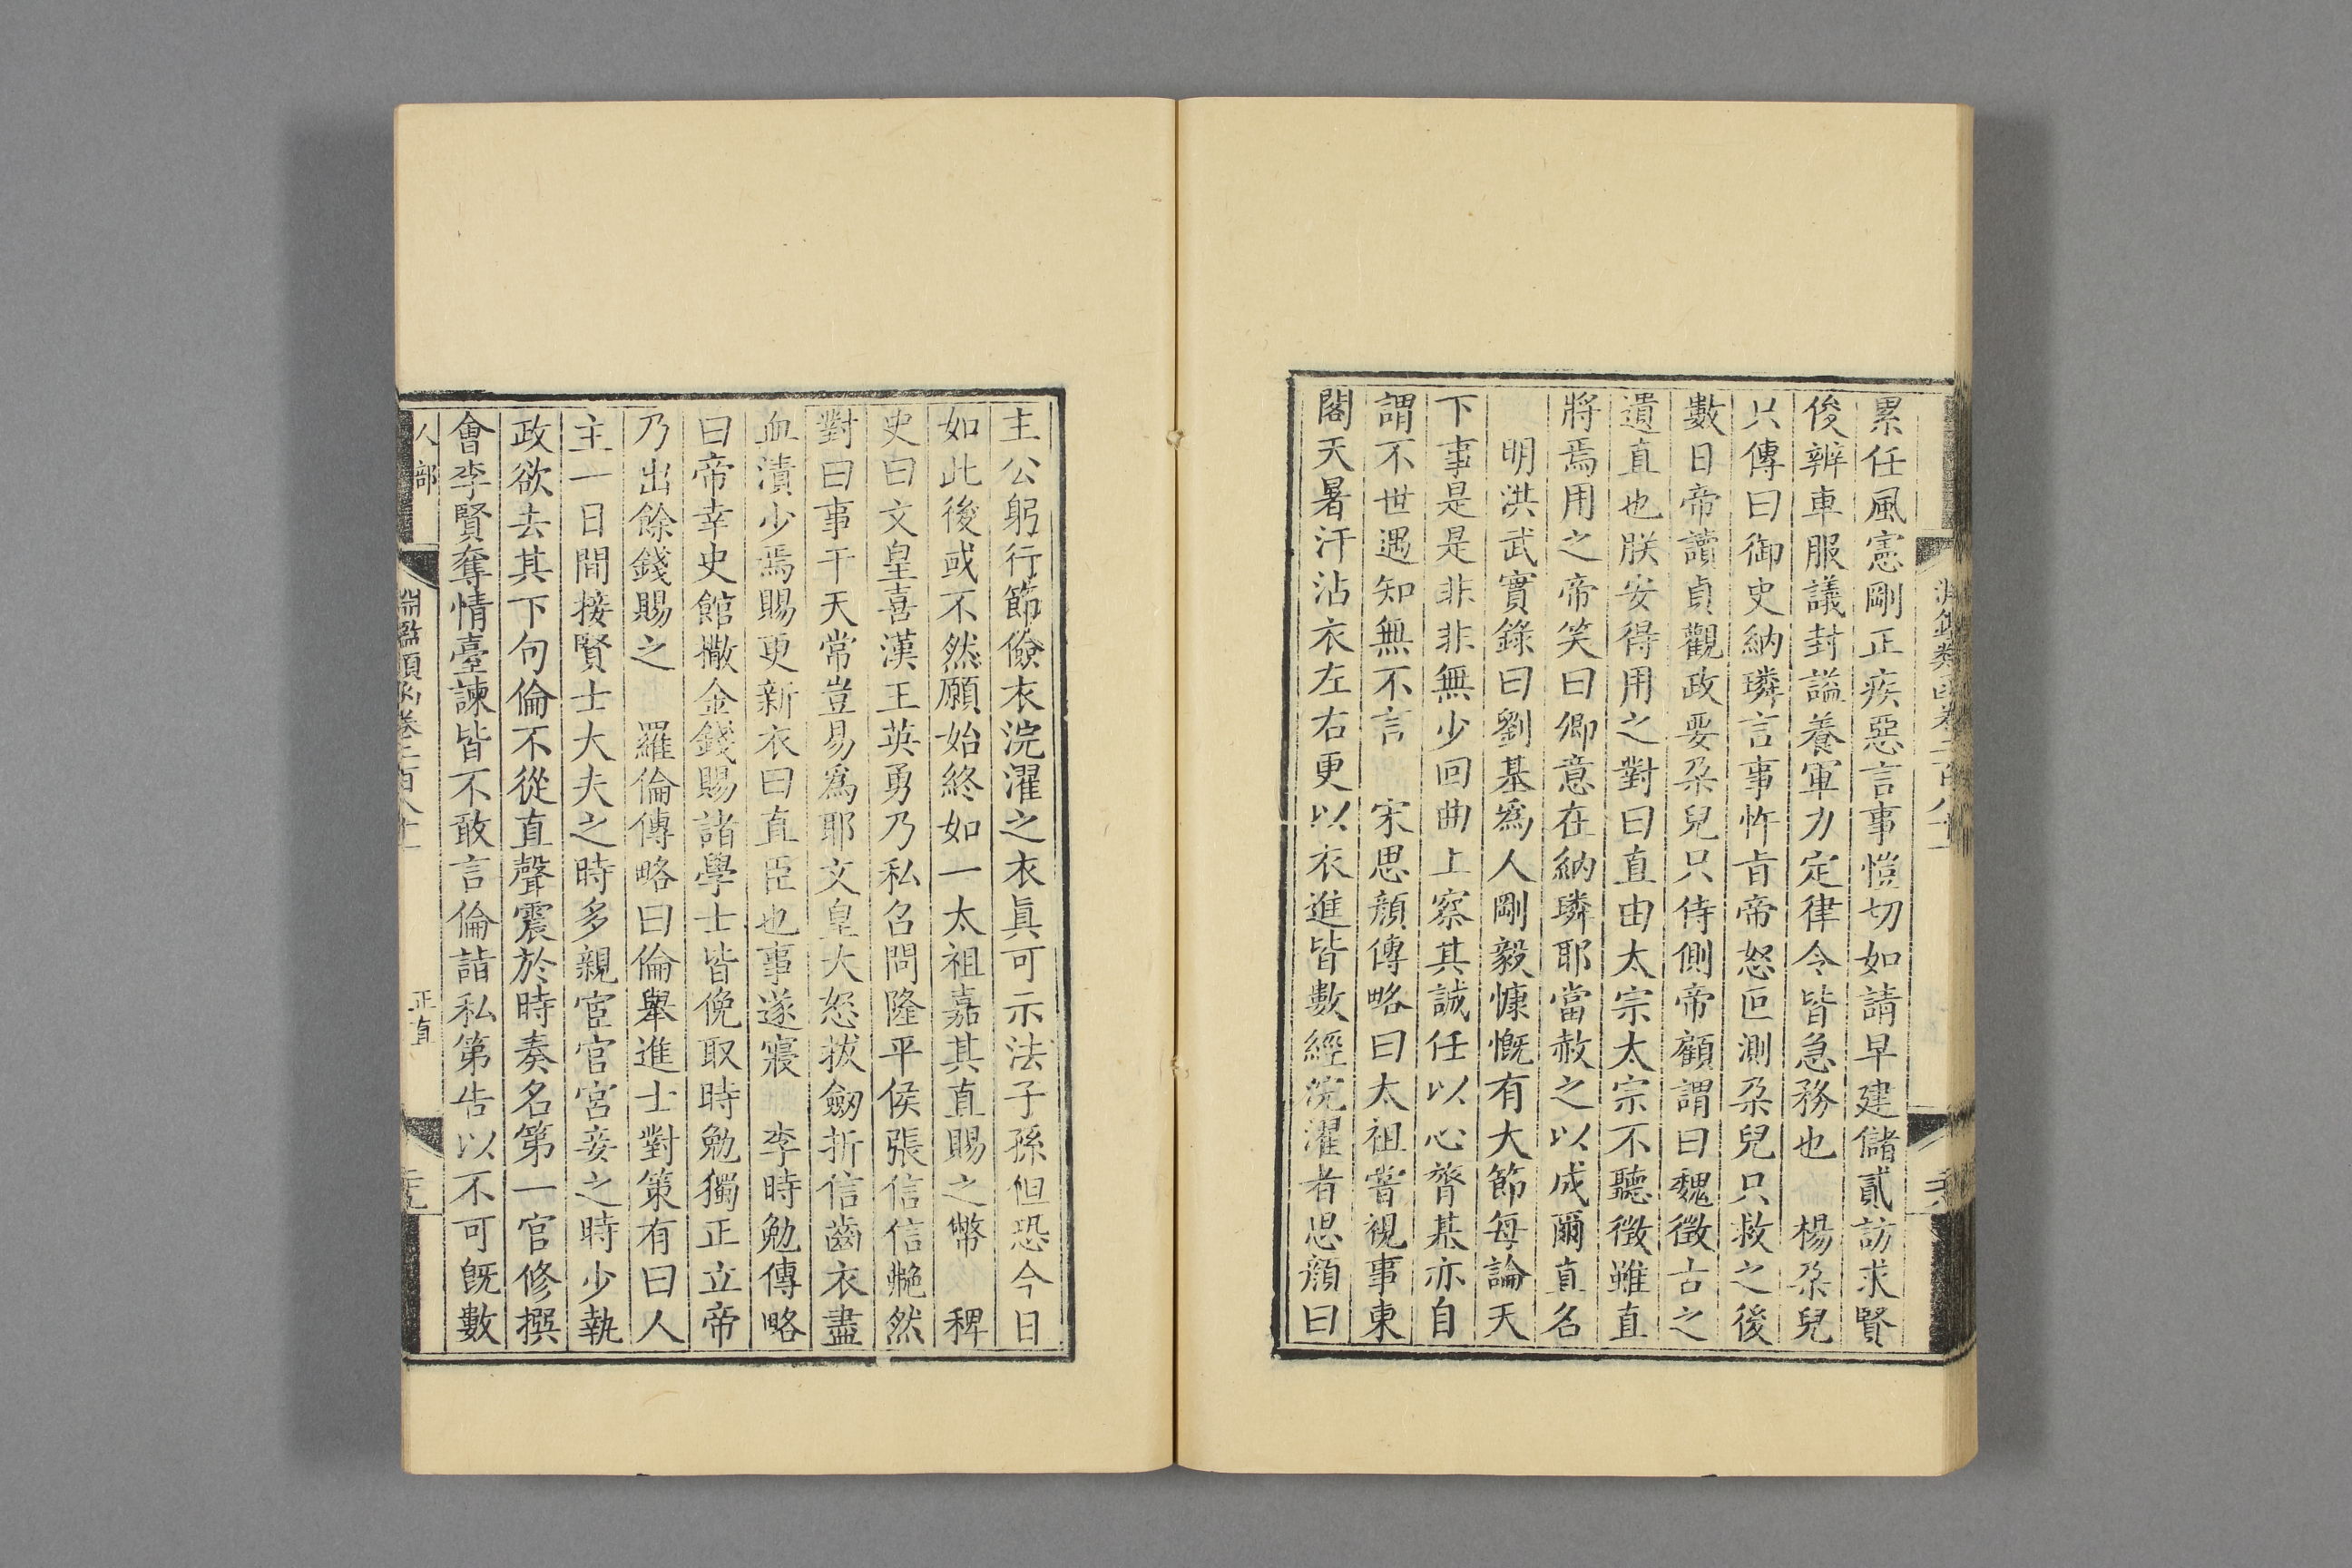 累任風憲剛正疾惡言事愷切如請早建儲貳訪求賢
俊辨車服議封謚養軍力定律令皆急務也　楊朶兒
只傳曰御史納璘言事忤旨帝怒叵測朶兒只救之後
數日帝讀貞觀政要朶兒只侍側帝顧謂曰魏徵古之
遺直也朕安得用之對曰直由太宗太宗不聽徵雖直
將焉用之帝笑曰卿意在納璘耶當赦之以成爾直名
明洪武實錄曰劉基爲人剛毅慷慨有大節每論天
下事是是非非無少回曲上察其誠任以心膂基亦自
謂不世遇知無不言　宋思顏傳略曰太祖嘗視事東
閣天暑汗沾衣左右更以衣進皆數經浣濯者思顏曰
主公躬行節儉衣浣濯之衣眞可示法子孫但恐今日
如此後或不然願始終如一太祖嘉其直賜之幣　稗
史曰文皇喜漢王英勇乃私召問隆平侯張信信艴然
對曰事干天常豈易爲耶文皇大怒拔劒折信齒衣盡
血漬少焉賜更新衣曰直臣也事遂寢　李時勉傳略
曰帝幸史館撒金錢賜諸學士皆俛取時勉獨正立帝
乃出餘錢賜之　羅倫傳略曰倫舉進士對策有曰人
主一日間接賢士大夫之時多親宦官宮妾之時少執
政欲去其下句倫不從直聲震於時奏名第一官修撰
會李賢奪情臺諫皆不敢言倫詣私第告以不可旣數
人部
淵鑑類函卷二百八十一
正直